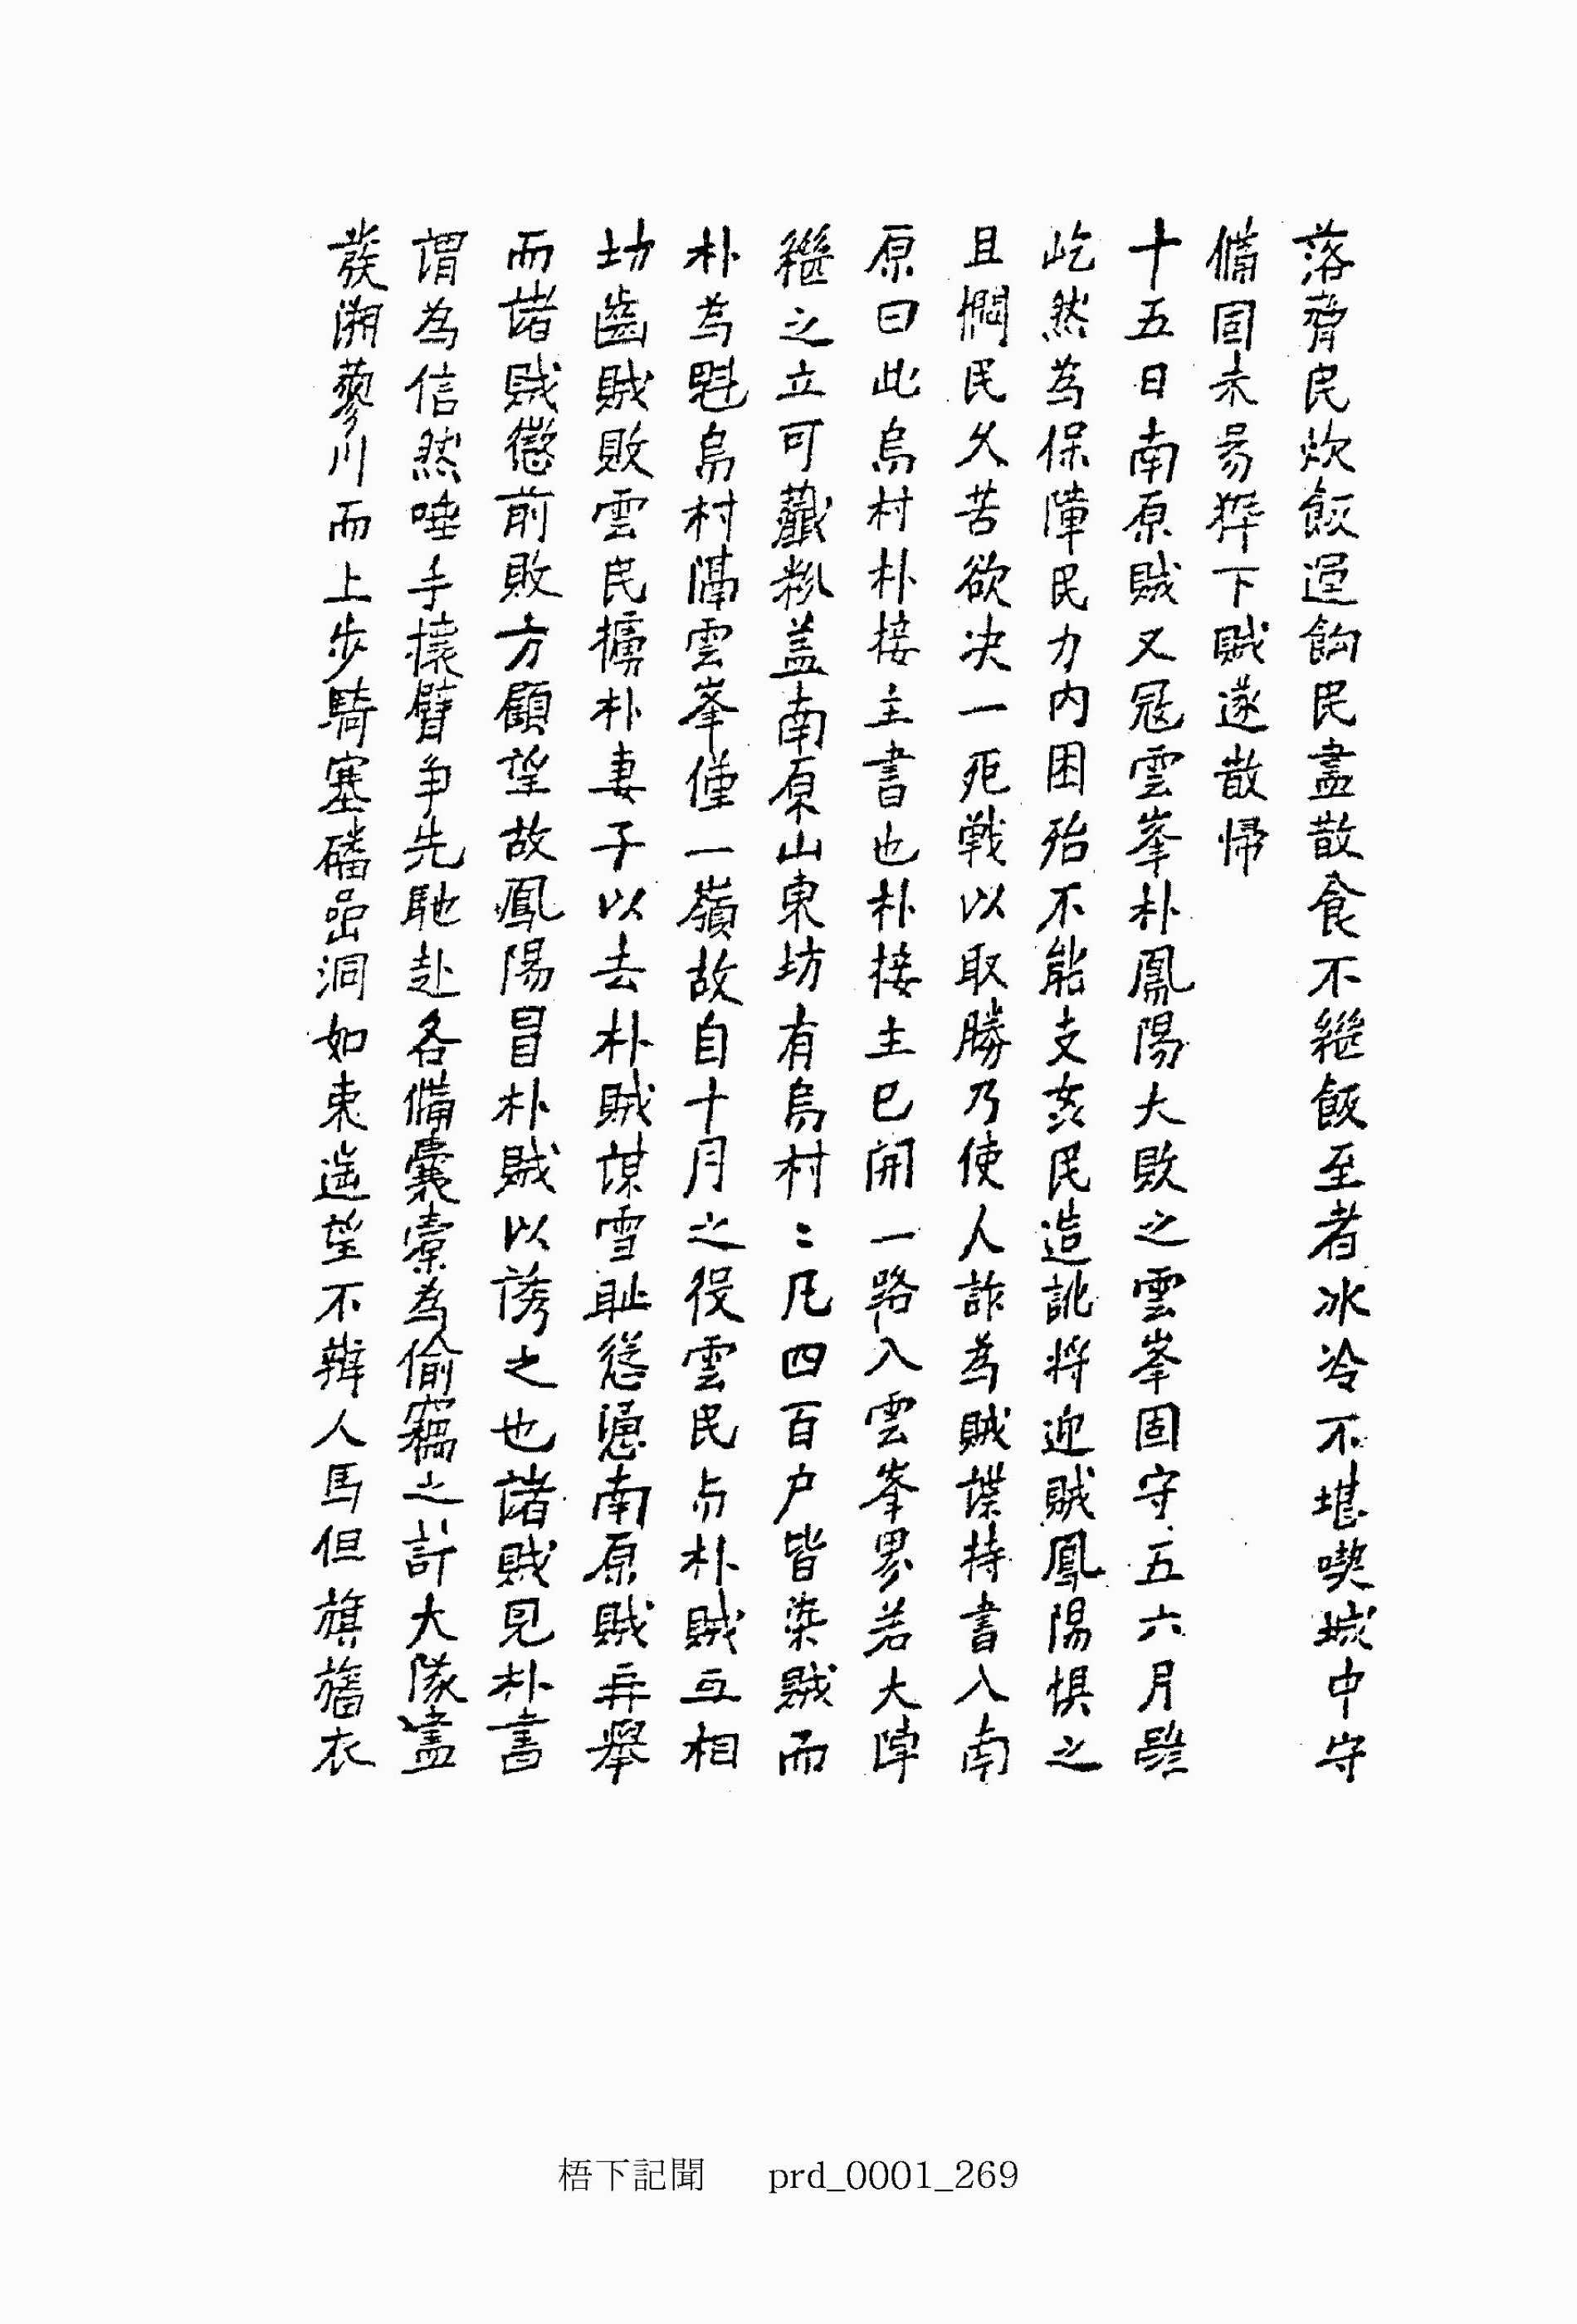 落脅民炊飯逼餉民盡散食不繼飯至者冰冷不堪喫城中守
備固未易猝下賊遂散歸
十五日南原賊又冦雲峯朴鳳陽大敗之雲峯固守五六月雖
屹然為保障民力內困殆不能支亥民造訛將迎賊鳳陽惧之
且憫民久苦欲决一死戦以取勝乃使人詐為賊諜持書入南
原曰此烏村朴接主書也朴接主已開一路入雲峯界若大陣
繼之立可虀粉盖南原山東坊有烏村〻凡四百户皆染賊而
朴為魁烏村隔雲峯僅一嶺故自十月之役雲民与朴賊互相
坊齒賊敗雲民擄朴妻子以去朴賊謀雪耻慫慂南原賊再舉
而諸賊懲前敗方顧望故鳳陽冒朴賊以誘之也諸賊見朴書
謂為信然唾手攘臂争先馳赴各備囊橐為偷竊之計大隊盡
蔟溯蓼川而上步騎塞磻嵒洞如束遥望不辨人馬但旗旛衣
梧下記聞 prd_0001_269